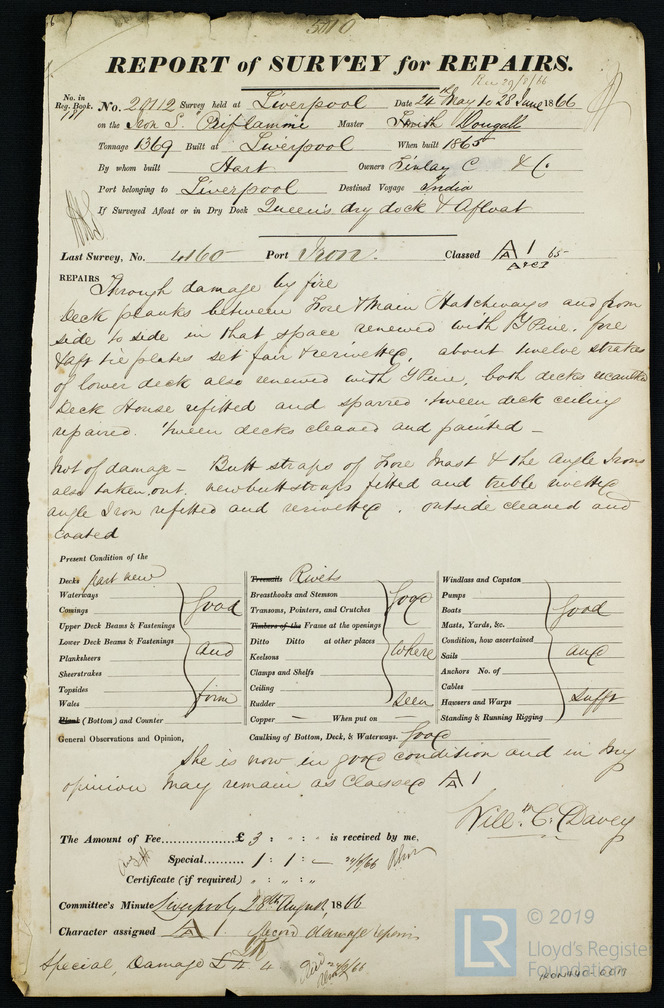 REPORT of SURVEY for REPAIRS.
Rec 29/8/66
No. in Reg. Book. 171 No. 20112 Survey held at Liverpool Date 24th May to 28 June 1866
on the Iron S. Oriflamme Master Smith Dougall
Tonnage 1369 Built at Liverpool When built 1865
By whom built Hart Owners Finlay C & Co
Port belonging to Liverpool Destined Voyage India
If Surveyed Afloat or in Dry Dock Queen's dry dock & Afloat
Last Survey, No. 4160 Port Iron. Classed A 1 65
REPAIRS Through damage by fire
Deck planks between Fore & Main Hatchways and from
side to side in that space renewed with Y Pine. fore
& aft tie plates set fair & rerivetted, about twelve strakes
of lower deck also renewed with Y Pine, both decks recaulked
Deck House refitted and sparred 'tween deck ceiling
repaired. 'tween decks cleaned and painted -
Not of damage - Butt straps of Fore Mast & the Angle Irons
also taken out. new butt straps fitted and treble rivetted
angle Iron refitted and rerivetted. outside cleaned and
coated
Present Condition of the
Decks part new
Waterways
Comings
Upper Deck Beams & Fastenings
Lower Deck Beams & Fastenings
Planksheers
Sheerstrakes
Topsides
Wales
Plank (Bottom) and Counter
Good and firm
Treenails Rivets
Breasthooks and Stemson
Transoms, Pointers, and Crutches
Timbers of the Frame at the openings
Ditto Ditto at other places
Keelsons
Clamps and Shelfs
Ceiling
Rudder
Copper — When put on —
Good where seen
Windlass and Capstan
Pumps
Boats
Masts, Yards, &c.
Condition, how ascertained
Sails
Anchors No. of
Cables
Hawsers and Warps
Standing & Running Rigging
Good and Sufft
General Observations and Opinion, Caulking of Bottom, Deck, & Waterways. Good
She is now in good condition and in my
opinion may remain as Classed A 1
Willm C. Davey
The Amount of Fee £ 3 : : : is received by me,
Special 1 : 1 : —
Certificate (if required) " : " : "
Committee's Minute Liverpool, 28th August, 1866
Character assigned A 1. Record damage repairs
Special, Damage £ 4
© 2019
LR
Lloyd's Register
Foundation